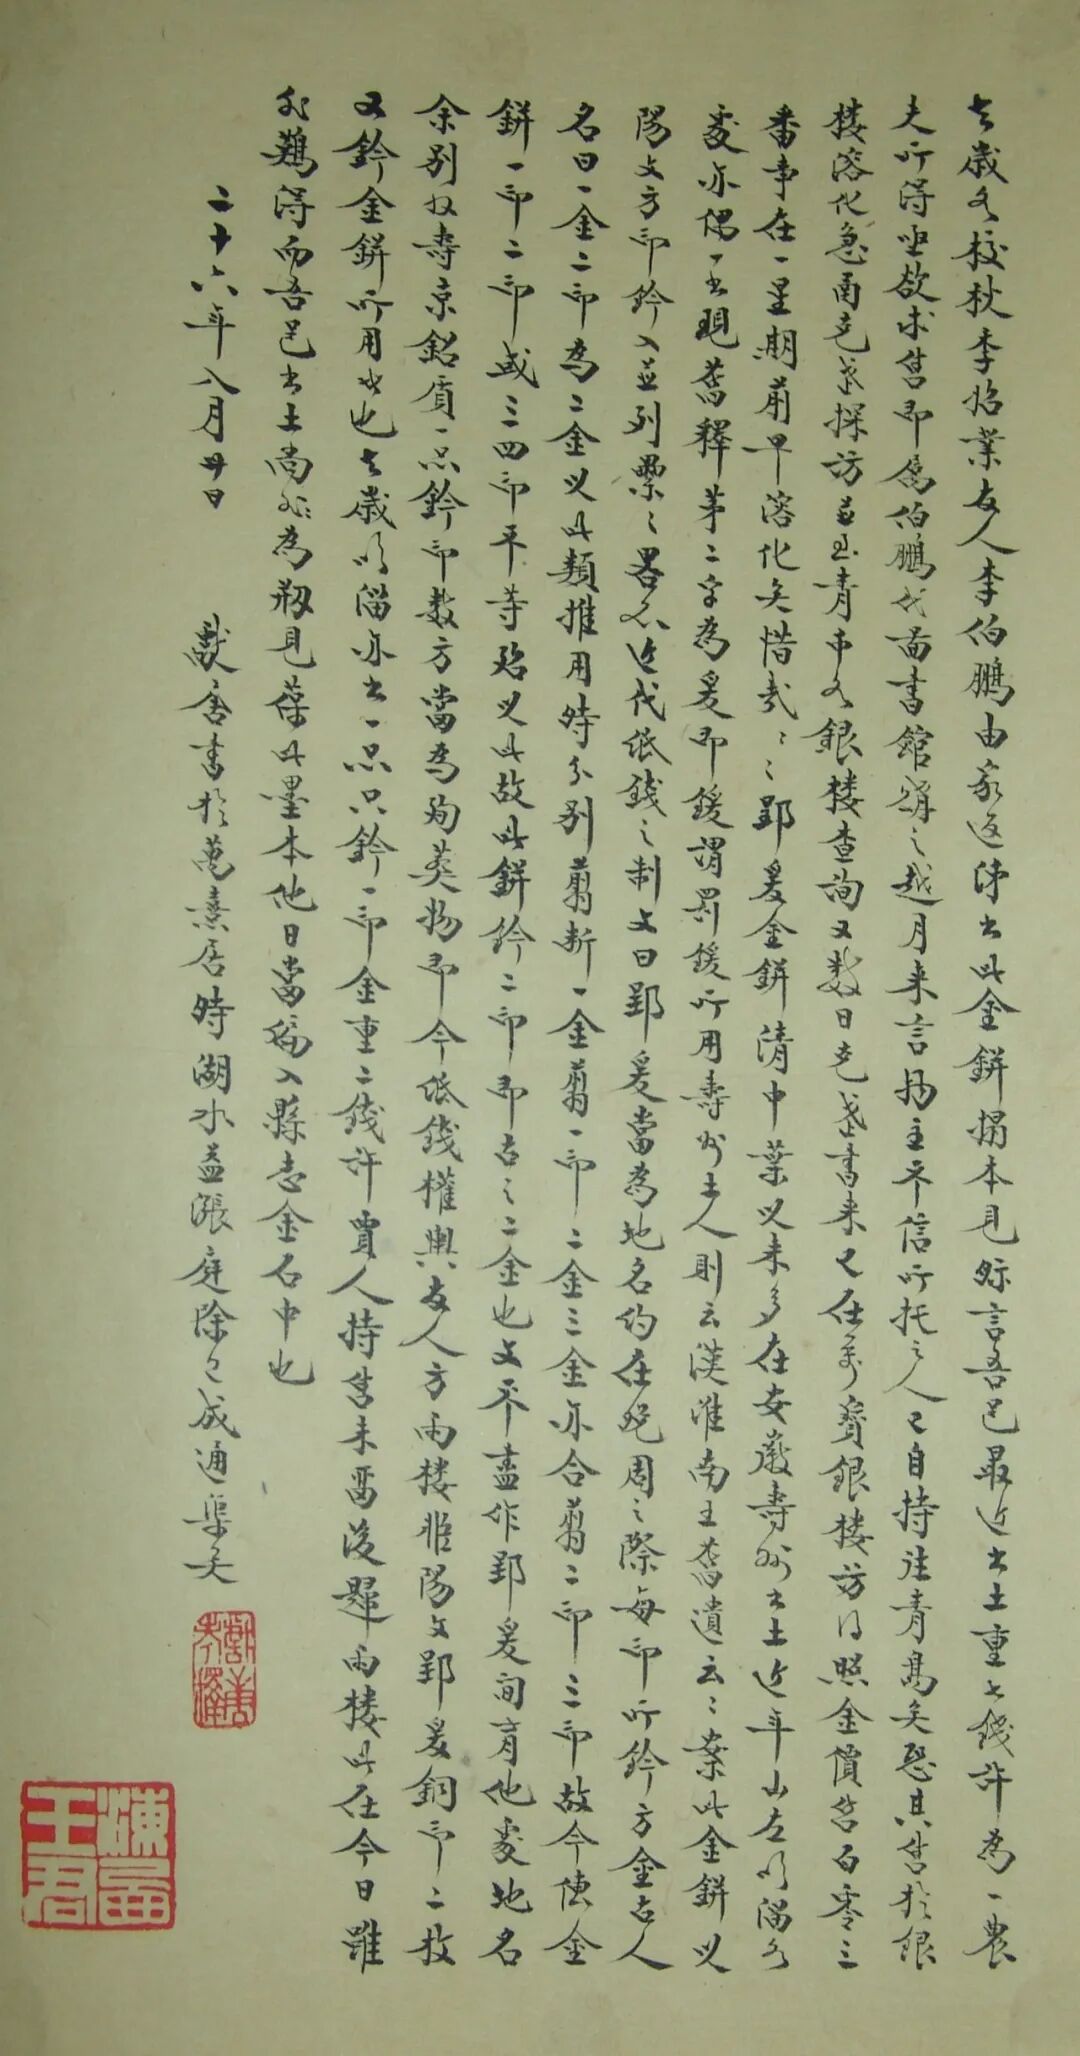 去歲冬投秋季始業友人李伯鵬由家返沛出此金鉼搨本見眎言吾邑最近出土重七錢許為一農
夫所得亟欲求售即屬伯鵬代圖書館購之越月來言物主不信所托之人已自持往青島矣恐其售於銀
樓溶化急函克丞探訪並至青市各銀樓查詢又數日克丞書來已在萬寶銀樓訪得照金價售白零三
番事在一星期前早溶化矣惜哉惜哉郢爰金鉼清中葉以來多在安徽壽州出土近年山左臨淄各
處亦偶一出現舊釋第二字為爰即鍰謂罰鍰所用壽州土人則云漢淮南王舊遺云云案此金鉼以
陽文方印鈐入並列纍纍畧似近代紙錢之制文曰郢爰當為地名約在晚周之際每印所鈐方金古人
名曰一金二印為二金以此類推用時分別翦斷一金翦一印二金三金亦合翦二印三印故今傳金
鉼一印二印或三四印不等殆以此故此鉼鈐二印即古之二金也文不盡作郢爰間有他處地名
余別收壽京銘質一品鈐印數方當為殉葬物即今紙錢權輿友人方雨樓收陽文郢爰銅印二枚
又鈐金鉼所用者也去歲臨淄亦出一品只鈐一印金重二錢許賈人持售未留後歸雨樓此在今日雖
非難得而吾邑出土尚為剏見葆此墨本他日當編入縣志金石中也
二十六年八月廿日 獻唐書於萬熹居時湖水益漲庭除已成通渠矣